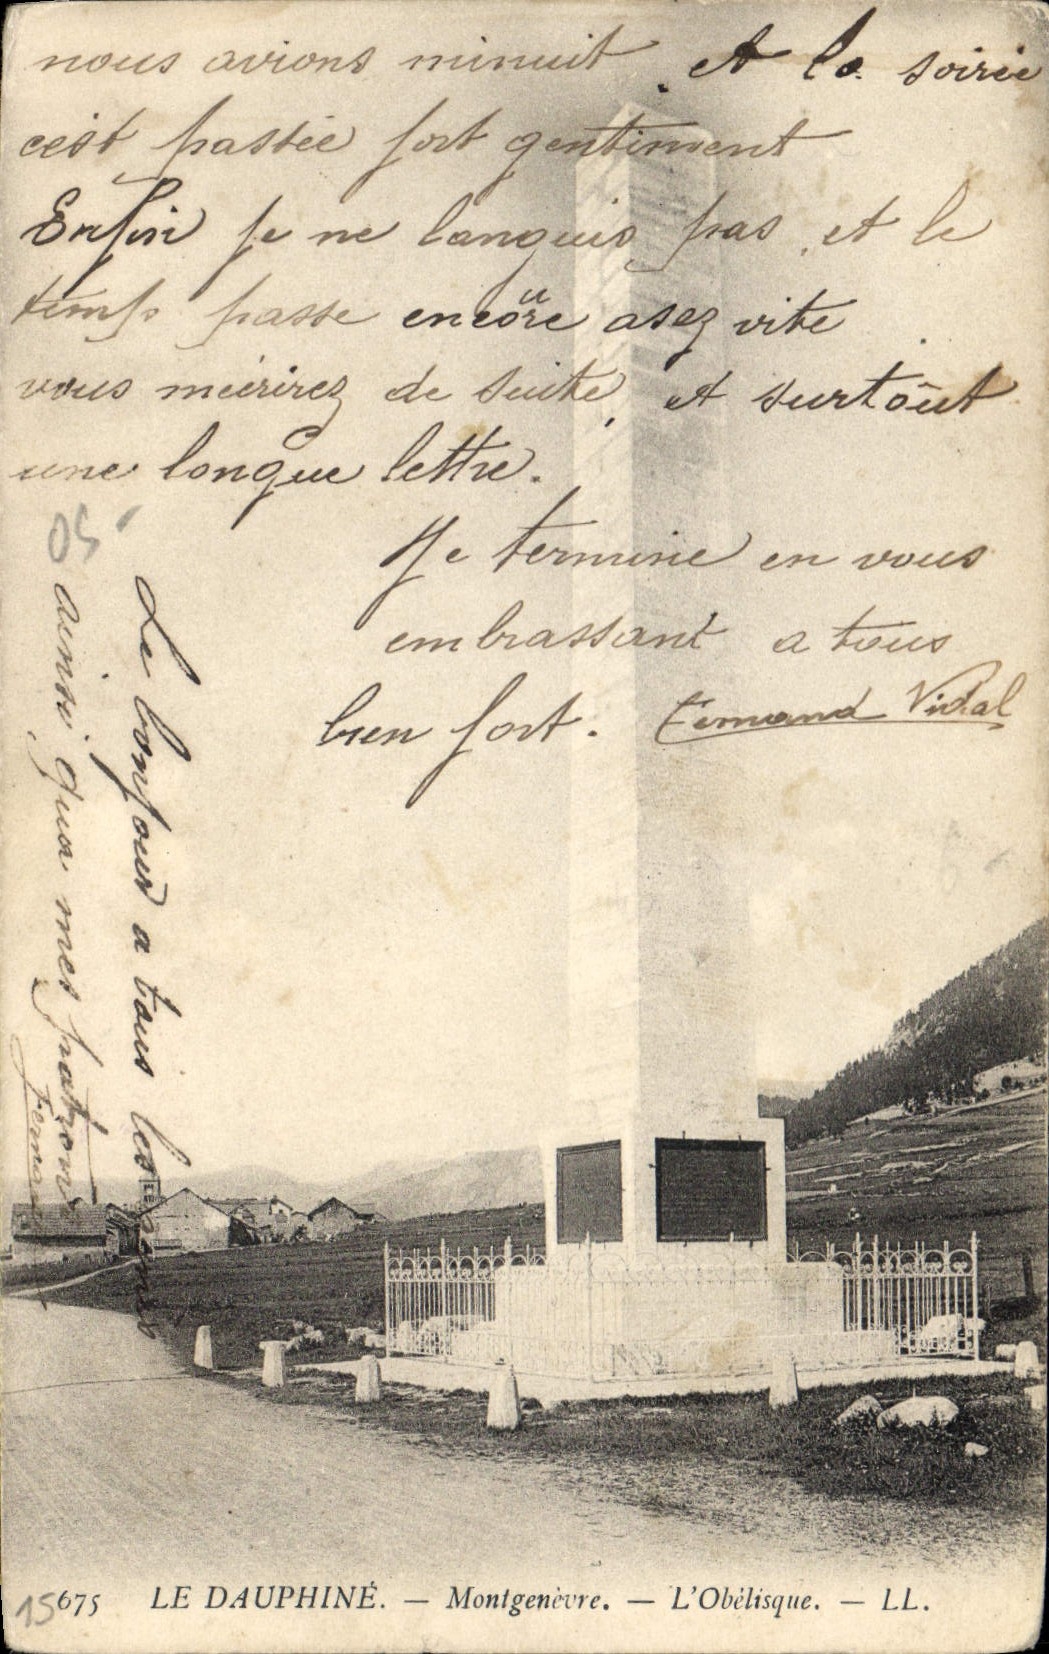 nous avions minuit. et la soirée
cest passée fort gentiment
Enfin je ne languis pas, et le
temps passe encore asez vite
vous mécrirez de suite, et surtout
une longue lettre.
Je termine en vous
embrassant a tous
bien fort. Fernand Vidal
Le bonjour a tous les
ainsi qua mes patrons
Fernand
05
15
675 LE DAUPHINÉ. — Montgenèvre. — L'Obélisque. — LL.